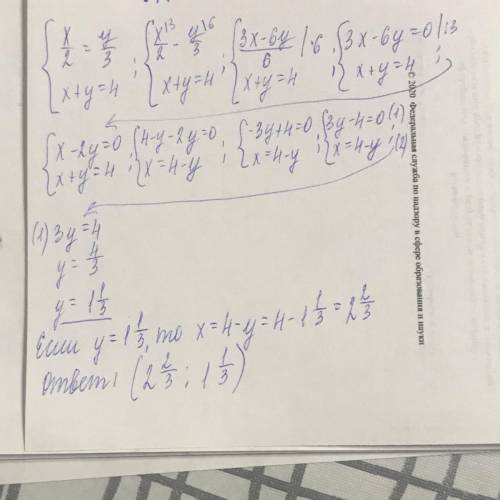 { x/2 = y/3 ; { x^13/2 - y^16/3 ; { 3x-6y/6 | ·6 ; { 3x-6y=0 | :3
{ x+y=4 { x+y=4 { x+y=4 { x+y=4 ;
{ x-2y=0 ; { 4-y-2y=0 ; { -3y+4=0 ; { 3y-4=0 (1)
{ x+y=4 { x=4-y { x=4-y { x=4-y ; (2)
(1) 3y=4
y=4/3
y=1 1/3
Если y=1 1/3, то x=4-y=4-1 1/3=2 2/3
Ответ: (2 2/3 ; 1 1/3)
© 2020 Федеральная служба по надзору в сфере образования и науки